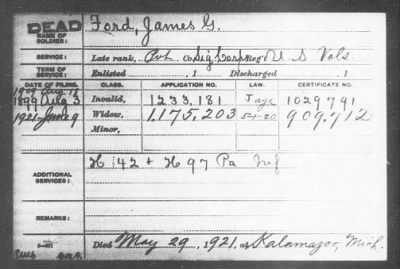 DEAD
NAME OF SOLDIER: Ford, James G.
SERVICE: Late rank, Pvt Co Sig Corps Reg't U S Vols
TERM OF SERVICE: Enlisted , 1 Discharged , 1
DATE OF FILING. CLASS. APPLICATION NO. LAW. CERTIFICATE NO.
1909 Aug 18
1899 Aug 3 Invalid, 1233,181 1029791
1921 June 9 Widow, 1,175,203 5-1-20 909,712
Minor,
ADDITIONAL SERVICES: H 142 + H 97 Pa Inf
REMARKS:
Died May 29, 1921, at Kalamazoo, Mich.